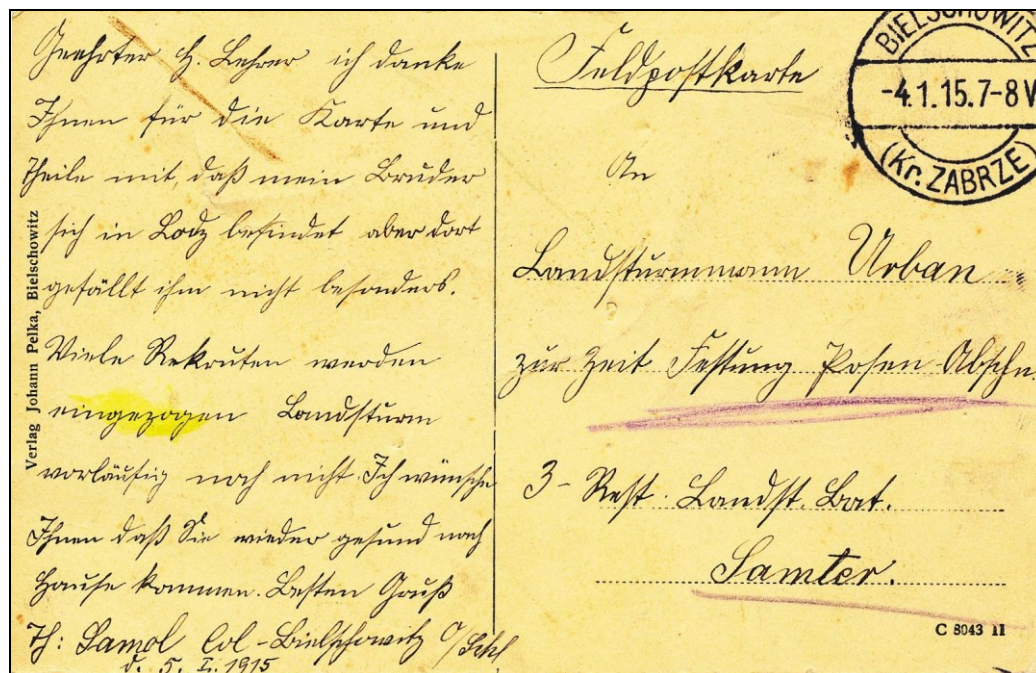 Geehrter H. Lehrer ich danke
Ihnen für die Karte und
Theile mit, daß mein Bruder
sich in Lodz befindet aber dort
gefällt ihm nicht besonders.
Viele Rekruten werden
eingezogen Landsturm
vorläufig noch nicht. Ich wünsche
Ihnen daß Sie wieder gesund nach
Hause kommen. Besten Gruß
Th: Samol Col-Bielschowitz O/Schl
d. 5. I. 1915
Verlag Johann Pelka, Bielschowitz
Feldpostkarte
BIELSCHOWITZ
-4.1.15.7-8V
(Kr. ZABRZE)
An
Landsturmmann Urban
zur Zeit Festung Posen Abschn
3- Landst. Bat.
Samter.
C 8043 II